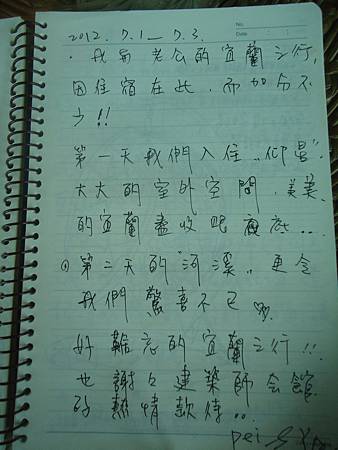 No.
Date
2012. 7.1 — 7.3.
·我与老公的宜蘭之行,
因住宿在此,而加分不
少!!
第一天我們入住..仰星..
大大的室外空間,美美
的宜蘭盡收眼底...
第二天的"河漾",更令
我們驚喜不已
好難忘的宜蘭之行!!
也謝々建築師会館
的熱情款待..
pei